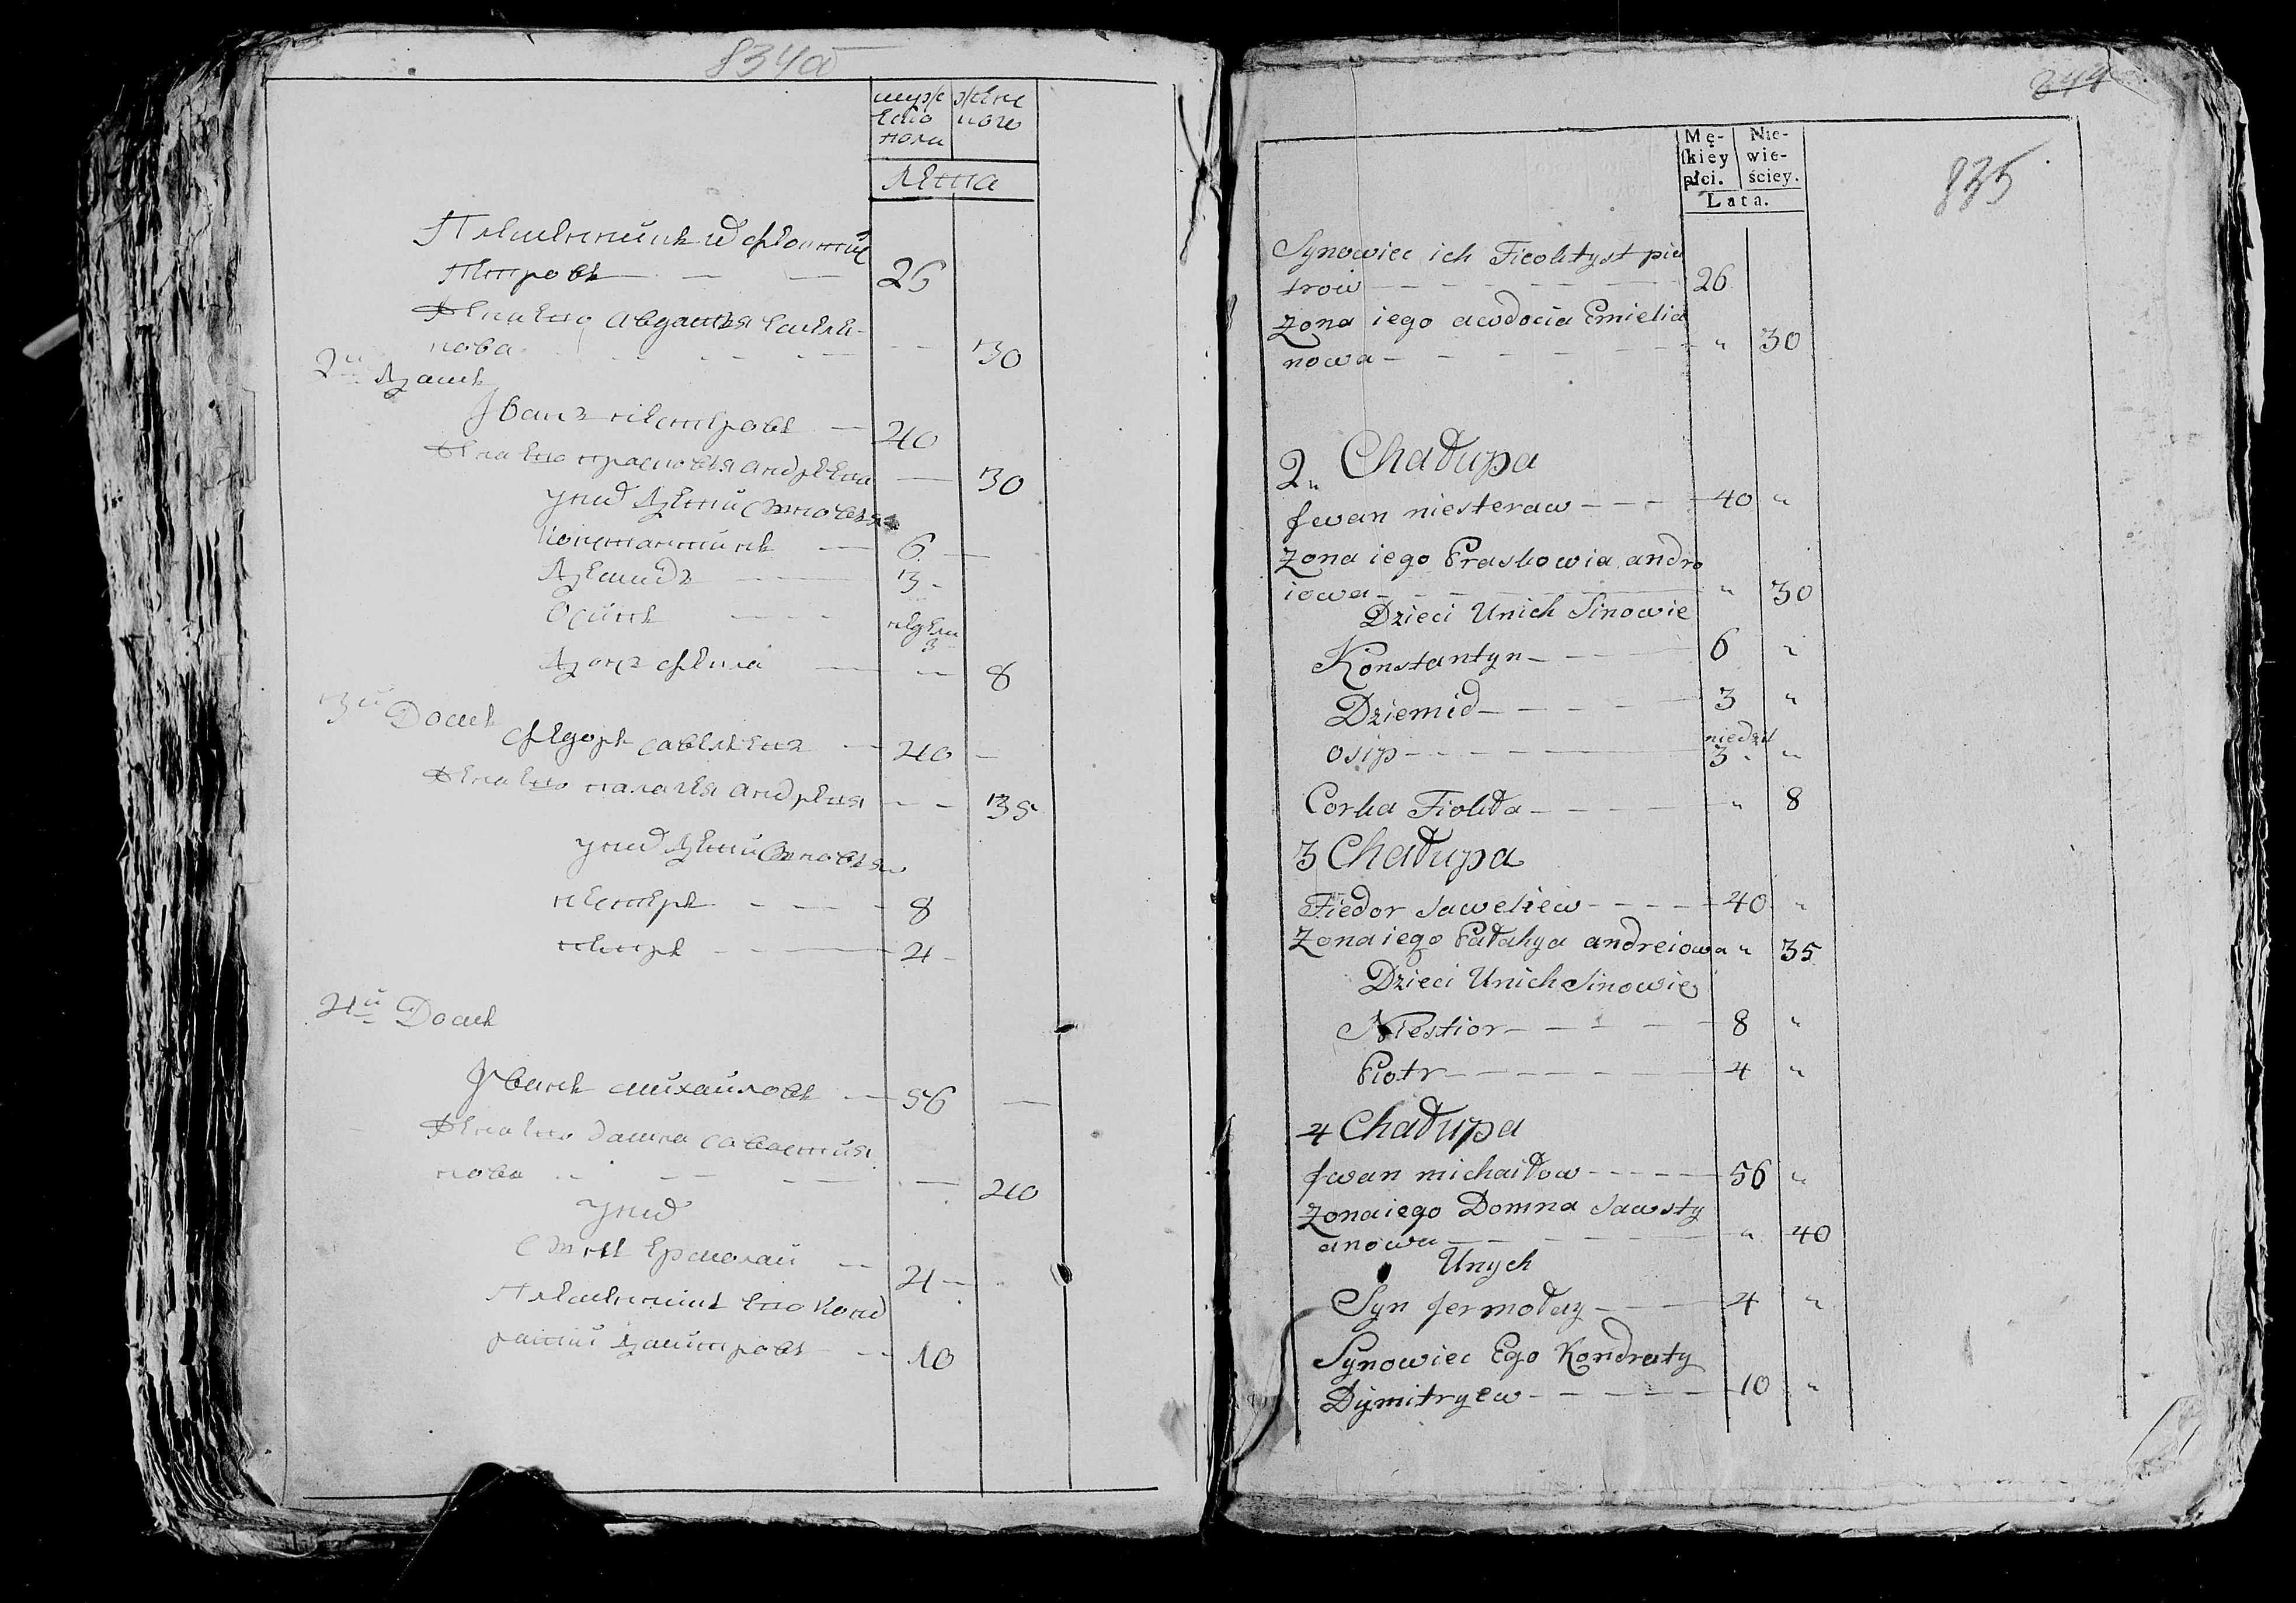 834а
муже
ско
пола
жене
ского
лета
Племенникъ феоктис
Петровъ — — — 26
Жена его авдотья емель-
нова — — 30
2й Домъ
Іванъ нестеровъ — 40
Жена его прасковья андреева — 30
у них Дети Сыновья
Константинъ — 6 —
Демидъ — 3 -
Осипъ — недели
3
Дочь фекла — — 8
3й Домъ
федоръ савельевъ — 40 —
Жена его палагея андреева — — 35
у них Дети Сыновья
нестеръ — 8
петръ — 4 -
4й Домъ
Іванъ михаиловъ — 56 —
Жена его домна савостия
нова — — 40
у них
Сынъ ермолаи — 4 —
Племенникъ его Конд
ратий Дмитровъ — 10
244
835
Mę-
skiey
płci.
Nie-
wie-
ściey.
Lata.
Synowiec ich Fieoktyst pie
trow — — — 26
Zona iego awdocia Emielia
nowa — — — " 30
2" Chałupa
Jwan niesteraw — — — 40 "
Zona iego Praskowia andre
iowa — — — " 30
Dzieci Unich Sinowie
Konstantyn — — — 6 "
Dziemid — — — 3 "
niedzil
osip — — — 3 " "
Corka Fiokła — — — " 8
3 Chałupa
Fiedor Saweliew — — — 40 "
Zona iego Pałahya andreiowa " 35
Dzieci Unich Sinowie
Niestior — — — 8 "
Piotr — — — 4 "
4 Chałupa
Jwan michaiłow — — — 56 "
Zona iego Domna Sawsty
anowa — — — " 40
Unych
Syn Jermołay — — — 4 "
Synowiec Ego Kondraty
Dymitryew — — — 10 "